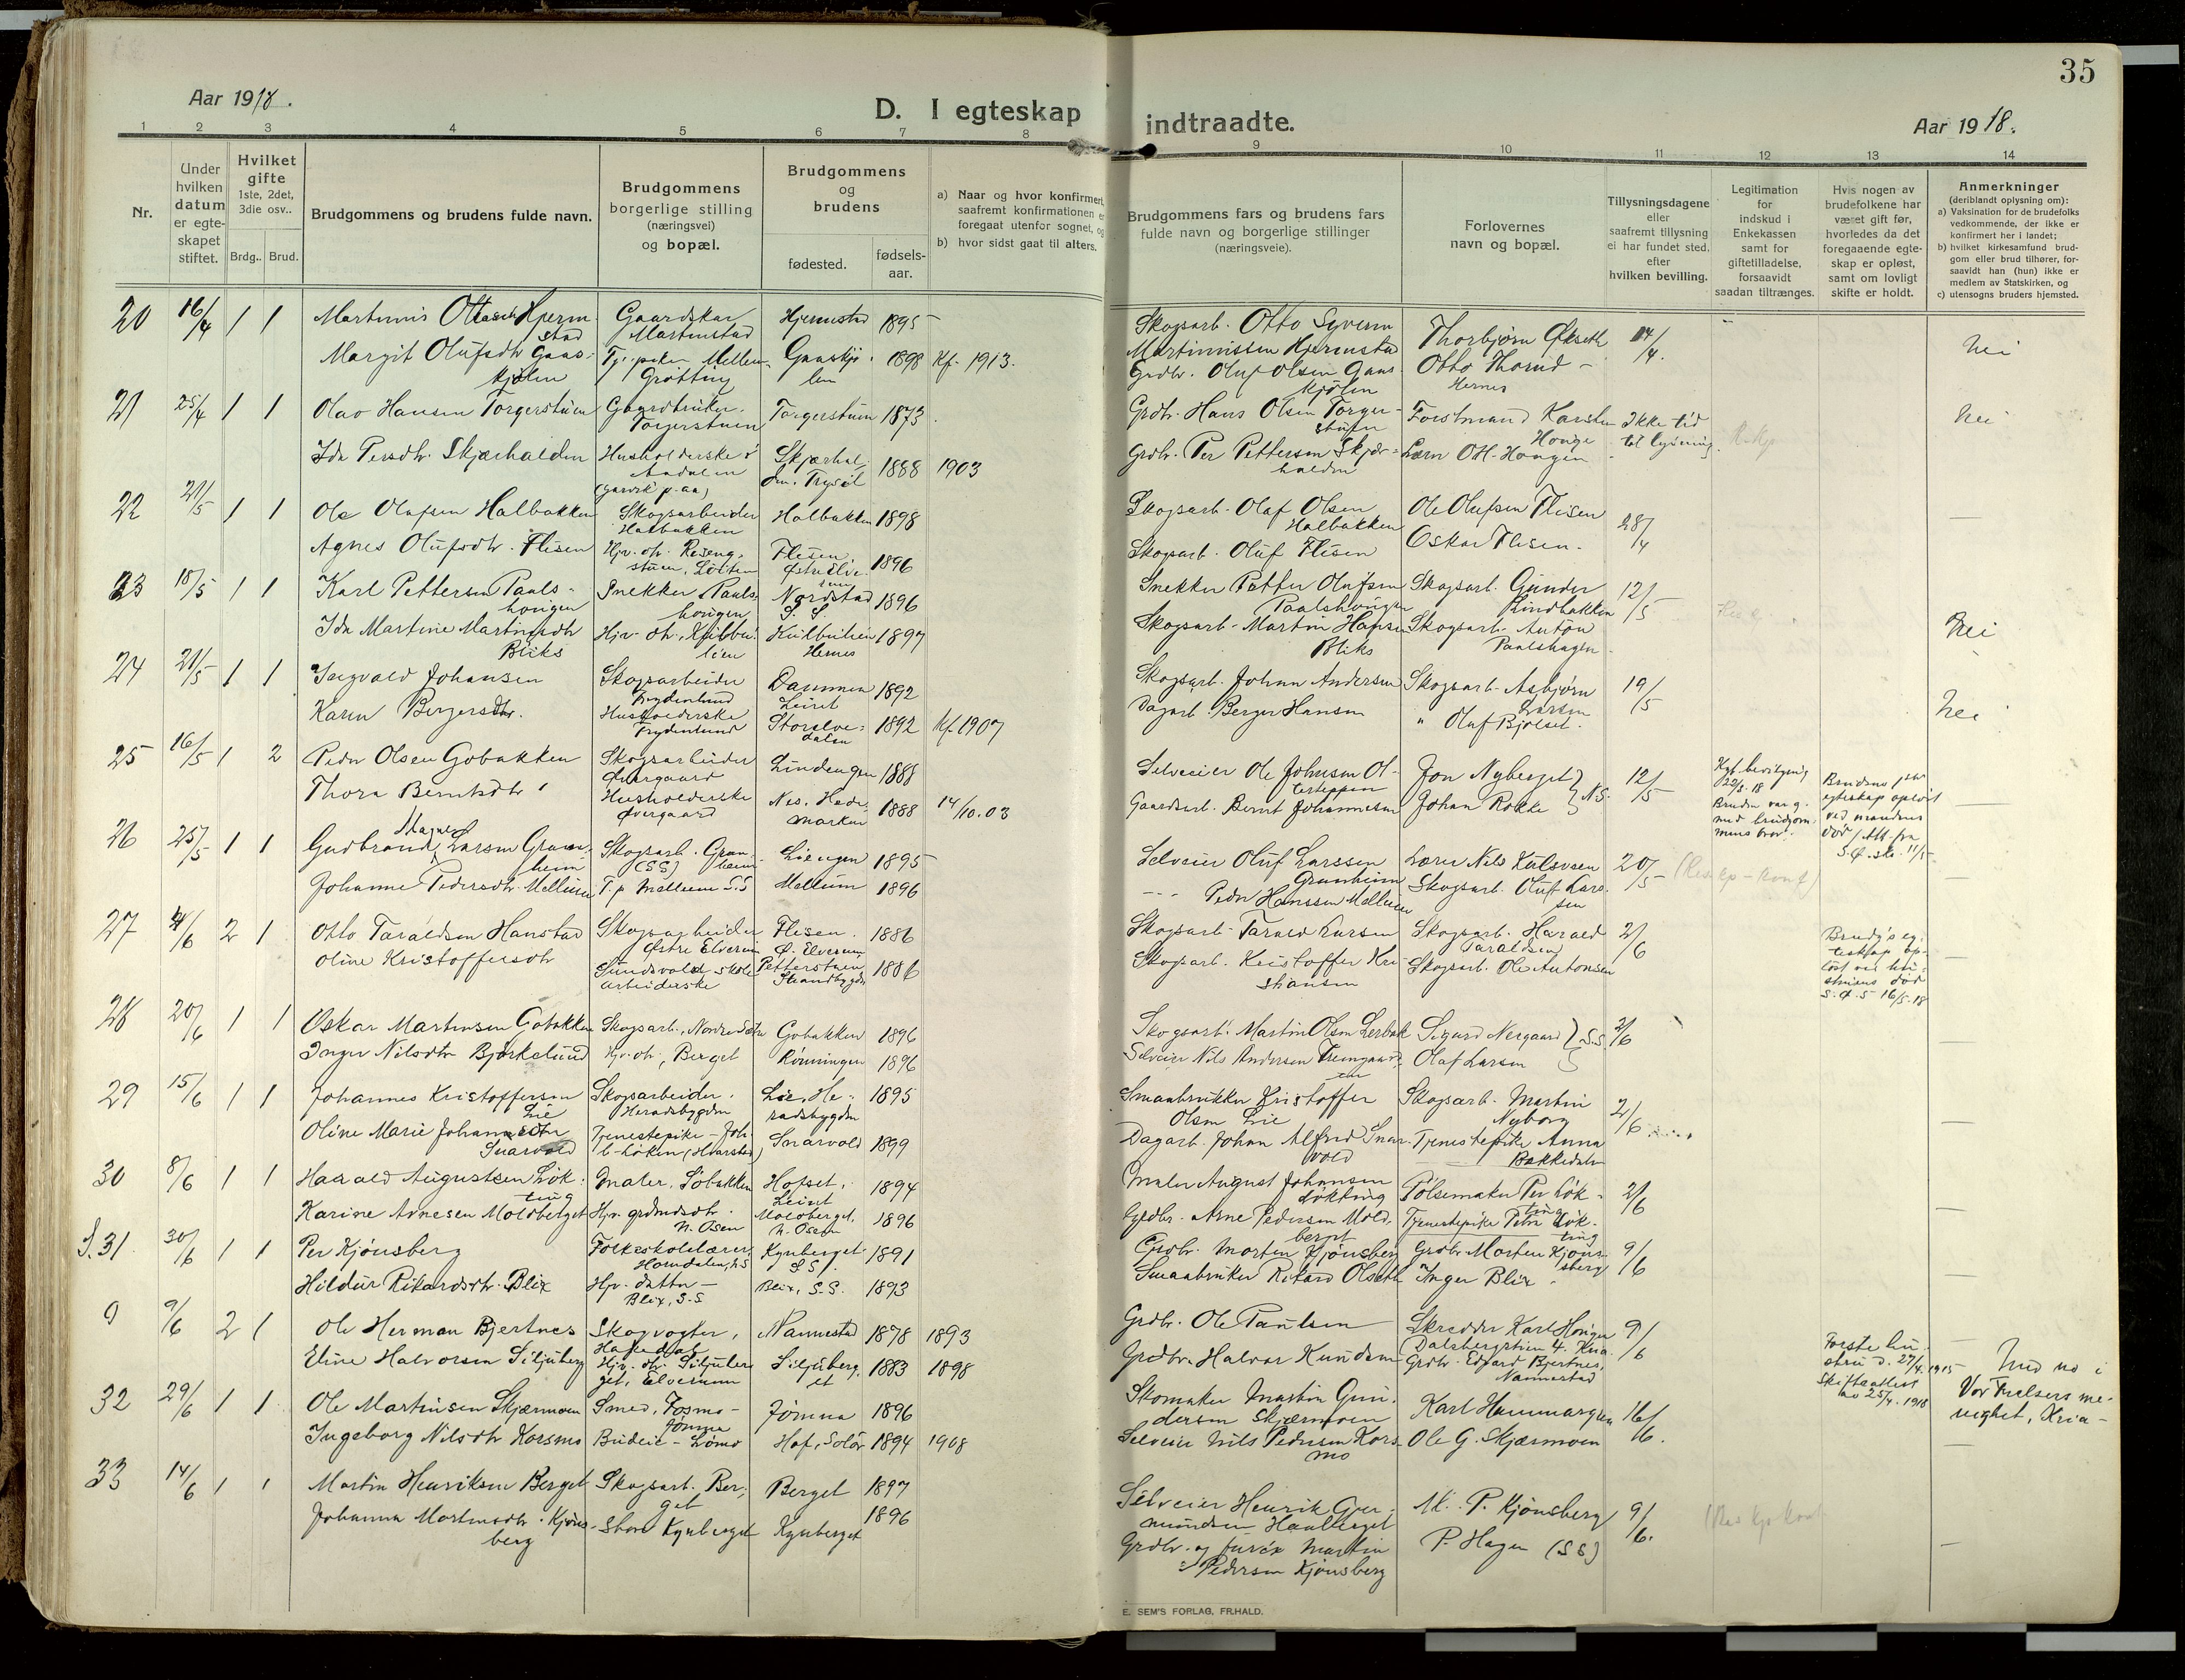 35
Aar 1918.
D. I egteskap indtraadte.
Aar 1918.
1 2 3 4 5 6 7 8 9 10 11 12 13 14
Nr.
Under
hvilken
datum
er egte-
skapet
stiftet.
Hvilket
gifte
1ste, 2det,
3die osv..
Brdg.. Brud.
Brudgommens og brudens fulde navn.
Brudgommens
borgerlige stilling
(næringsvei)
og bopæl.
Brudgommens
og
brudens
fødested.
fødsels-
aar.
a) Naar og hvor konfirmert,
saafremt konfirmationen er
foregaat utenfor sognet, og
b) hvor sidst gaat til alters.
Brudgommens fars og brudens fars
fulde navn og borgerlige stillinger
(næringsveie).
Forlovernes
navn og bopæl.
Tillysningsdagene
eller
saafremt tillysning
ei har fundet sted,
efter
hvilken bevilling.
Legitimation
for
indskud i
Enkekassen
samt for
giftetilladelse,
forsaavidt
saadan tiltrænges.
Hvis nogen av
brudefolkene har
været gift før,
hvorledes da det
foregaaende egte-
skap er opløst,
samt om lovligt
skifte er holdt.
Anmerkninger
(deriblandt oplysning om):
a) Vaksination for de brudefolks
vedkommende, der ikke er
konfirmert her i landet;
b) hvilket kirkesamfund brud-
gom eller brud tilhører, for-
saavidt han (hun) ikke er
medlem av Statskirken, og
c) utensogns bruders hjemsted.
20 16/4 1 1 Gaardskar Hjernstad 1895
Martinstad
Margit Olufsdtr Gaas-
kjølen
Grøtting 1898 Kf. 1913.
Skogsarb. Otto Syverin
Martiniussen Hjernstad
Grdbr. Oluf Olsen Gaas-
kjølen
Thorbjørn Økseth
Otto Thorud -
Hernes
14/4.
nei
21 25/4 1 1 Olav Hansen Torgerstuen Gaardbruker. Torgerstuen 1873
Torgerstuen
Ida Persdtr. Skjærhalden Husholderske i Skjærhal- 1888 1903
den. Trysil
Grdbr. Hans Olsen Torger-
stuen
Grdbr. Per Pettersen Skjær-
halden
Forstmand Karsten
Hauge
Lærer O.H. Haugen
Ikke tid
til lysning.
nei
22 21/5 1 1 Ole Olafsen Halbakken Skogsarbeider Halbakken 1898
Halbakken
Agnes Olufsdtr. Flisen Flisen 1896
stuen, Løiten
Skogsarb. Olaf Olsen
Halbakken
Skogsarb. Oluf Flisen
Ole Olufsen Flisen
Oskar Flisen.
28/4
23 18/5 1 1 Karl Pettersen Paals-
haugen
Snekker Paals-
haugen
Nordstad 1896
S.S.
Ida Martine Martinsdtr
Bliks
Kulbulien 1897
Hernes
Snekker Petter Olufsen
Paalshaugen
Skogsarb. Martin Hansen
Bliks
Skogsarb. Gunder
Lindbakken
Skogsarb. Anton
Paalshagen
12/5
nei
24 21/5 1 1 Ingvald Johansen Skogsarbeider 1892
Frydenlund Leiret
Karen Bergersdtr. Husholderske 1892 Kf. 1907
Frydenlund
Skogsarb. Johan Andersen
Dagarb. Berger Hansen
Skogsarb. Asbjørn
Larsen
" Olaf Bjølset.
19/5
nei
25 16/5 1 2 Peder Olsen Gobakken Skogsarbeider Lindengen 1888
Øvergaard
Thora Berntsdtr Husholderske Nes, Hede- 1888 14/10.03
Øvergaard marken
Selveier Ole Johnsen
Gaardsarb. Bernt Johannesen
Jon Nyberget
Johan Rokke N.S.
12/5
Kgl. bevilgning
Bruden var g.
med brudgom-
mens bror.
Brudens 1ste
egteskap opløst
ved mandens
død
26 25/5 1 1 Gudbrand Magne Larsen Gran-
heim
Skogsarb. Gran-
heim (SS)
Liengen 1895
Johanne Pedersdtr. Mellum T.p. Mellum S.S Mellum 1896
Selveier Oluf Larssen
Granheim
Peder Hanssen Mellum
Lærer Nils Kulsveen
Skogsarb. Oluf Lars-
sen
20/5
27 4/6 2 1 Otto Taraldsen Hanstad Skogsarbeider Flisen. 1886
Østre Elverum Ø. Elverum
Oline Kristoffersdtr Sundsvold, skole Petterstuen 1886
arbeiderske Strandbygdn
Skogsarb. Tarald Larsen
Skogsarb. Kristoffer Kri-
stiansen
Skogsarb. Harald
Taraldsen
Skogsarb. Ole Antonsen
2/6
Brudg's eg-
teskap op-
løst ved hu-
struens død
S.Ø.S 16/5.18
28 20/6 1 1 Oskar Martinsen Gobakken Skogsarb., Gobakken 1896
Inger Nilsdtr Bjørkelund Hjv. dtr., Berget Rønningen 1896
Skogsarb. Martin Olsen
Selveier Nils Andersen
Sigurd Nergaard S.S.
Olaf Larsen
2/6
29 15/6 1 1 Johannes Kristoffersen
Lie
Skogsarbeider. Lie, He- 1895
Heradsbygden radsbygden
Oline Marie Johansdtr
Snarvold
Tjenestepike - Joh.
Snarvold 1899
Smaabruker Kristoffer
Olsen Lie
Dagarb. Johan Alfred Snar-
vold
Skogsarb. Martin
Nyborg
Tjenestepike Anna
Bakkedalen
2/6
30 8/6 1 1 Harald Augustsen Løk-
ting
Maler, Hofset, 1894
Leiret
Karine Arnesen Moldberget Moldberget, 1896
N. Osen N. Osen
Maler August Johansen
Løkting
Grdbr. Arne Pedersen Mold-
berget
Pølsemaker Per Løk-
ting
Tjenestepike Petra Løk-
ting
2/6
S. 31 30/6 1 1 Per Kjønsberg Folkeskolelærer, Kynberget 1891
S.S.
Hildur Rikardsdtr. Blix Hjv. datter - Blix, S.S. 1893
Blix, S.S
Grdbr. Morten Kjønsberg
Smaabruker Rikard Olseth
Grdbr. Morten Kjøns-
berg
Inger Blix
9/6
9 9/6 2 1 Ole Herman Bjertnes Skogvogter, Nannestad 1878 1893
Eline Halvorsen Siljuberg Hjv. dtr. Siljuber- Siljuberg- 1883 1898
get, Elverum et
Grdbr. Ole Paulsen
Grdbr. Halvor Knudsen
Skredder Karl Haugen
Dalsbergstien 4, Kria.
Grdbr. Edvard Bjertnes,
Nannestad
9/6
Første hu-
stru d. 27/4.1915
Skifteattest
av 25/4. 1918
Viet no i
Vor Frelsers me-
nighet, Kria-
32 29/6 1 1 Ole Martinsen Skjærmoen Smed, Jømna 1896
Jømna
Ingeborg Nilsdtr Korsmo Budeie - Hof, Solør 1894 1908
Skomaker Martin Gun-
dersen Skjærmoen
Selveier Nils Pedersen Kors-
mo
Karl Hammargren
Ole G. Skjærmoen
16/6.
33 14/6 1 1 Martin Henriksen Berget Skogsarb. Ber- Berget 1897
get
Johanna Martinsdtr. Kjøns-
berg
Store Kynberget Kynberget 1896
Selveier Henrik
Haaberget
Grdbr. og Martin
Pedersen Kjønsberg
M. P. Kjønsberg
P. Hagen (SS)
9/6.
E. SEM'S FORLAG, FR.HALD.